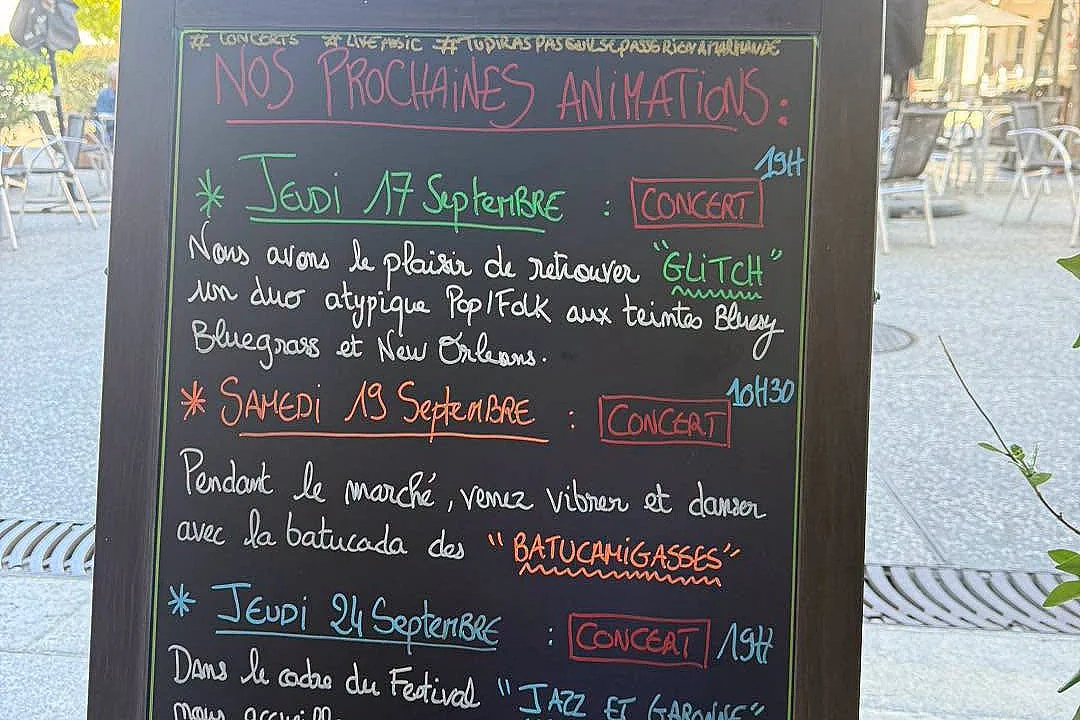 # CONCERTS # LIVE MUSIC #TUDIRASPASQUILSEPASSERIENAMARMANDE
NOS PROCHAINES ANIMATIONS :
19H
* JEUDI 17 SEPTEMBRE : CONCERT
Nous avons le plaisir de retrouver "GLITCH"
un duo atypique Pop/Folk aux teintes Bluesy
Bluegrass et New Orleans.
10H30
* SAMEDI 19 SEPTEMBRE : CONCERT
Pendant le marché, venez vibrer et danser
avec la batucada des "BATUCAMIGASSES"
* JEUDI 24 SEPTEMBRE : CONCERT 19H
Dans le cadre du Festival "JAZZ ET GARONNE"
nous